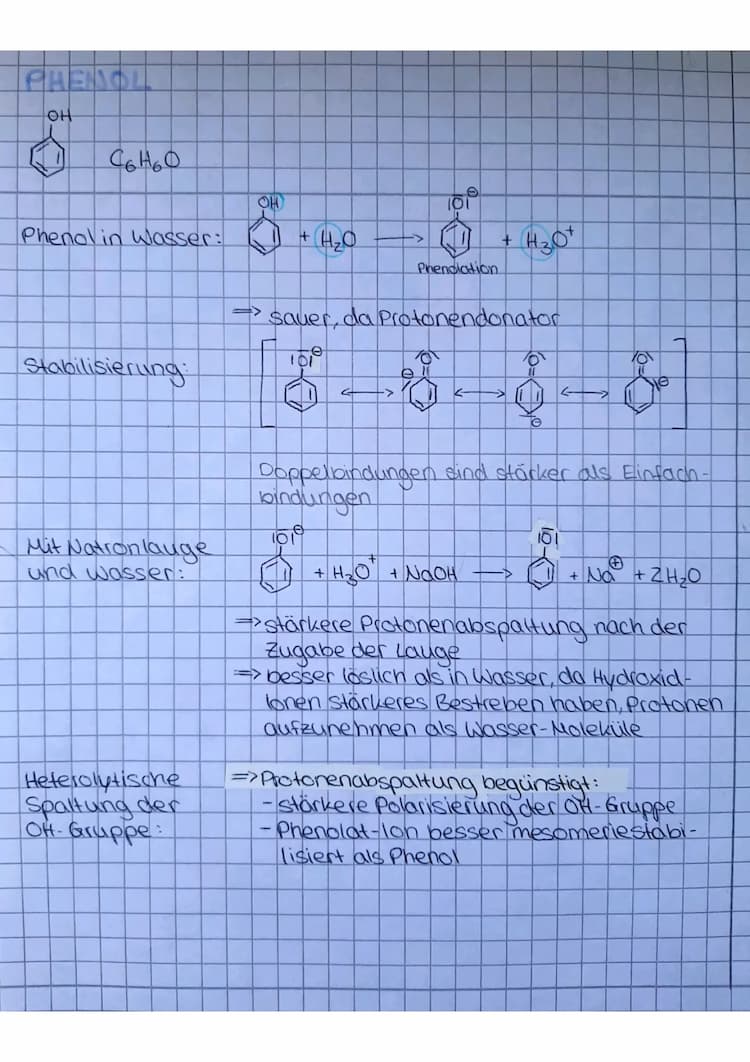 PHENOL
OH
C6H6O
Phenol in Wasser: OH + H2O → |O̅|⊖ + H3O⁺
Phenolation
=> sauer, da Protonendonator
Stabilisierung: [ |O̅|⊖ ↔ ⊖ |O| ↔ |O| ⊖ ↔ |O| ⊖ ]
Doppelbindungen sind stärker als Einfach-
bindungen
Mit Natronlauge
und Wasser: |O̅|⊖ + H3O⁺ + NaOH → |O̅| + Na⊕ + 2H2O
=> stärkere Protonenabspaltung nach der
Zugabe der Lauge
=> besser löslich als in Wasser, da Hydroxid-
Ionen stärkeres Bestreben haben, Protonen
aufzunehmen als Wasser-Moleküle
Heterolytische => Protonenabspaltung begünstigt:
Spaltung der - stärkere Polarisierung der OH-Gruppe
OH-Gruppe: - Phenolat-Ion besser mesomeriestabi-
lisiert als Phenol